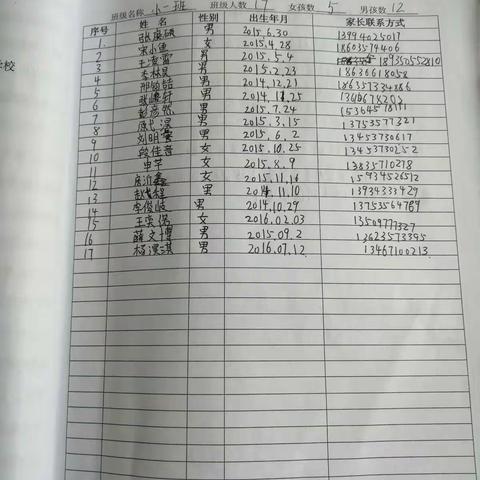 学校
班级名称 小一班 班级人数 17 女孩数 5 男孩数 12
序号 姓名 性别 出生年月 家长联系方式
1 男 2015.6.30 13994025017
2 宋小鱼 女 2015.4.28 18603574406
3 男 2015.5.4 189350552810
4 李林昊 男 2015.2.23 18636618058
5 男 2014.12.21 186357334886
6 男 2014.11.25
7 男 2015.7.24
8 男 2015.3.15 13753577321
9 刘明 男 2015.6.2 13453730617
10 段佳音 女 2015.10.25 13453730252
11 申芊 女 2015.8.9 13835710278
12 女 2015.11.16 15934526512
13 男 11.10 13934333429
14 李俊岐 男 2014.10.29
15 王奕偲 女 2016.02.03 13509777327
16 薛文博 男 2015.09.2 13623573395
17 杨淏淇 男 2016.07.12 13467100213